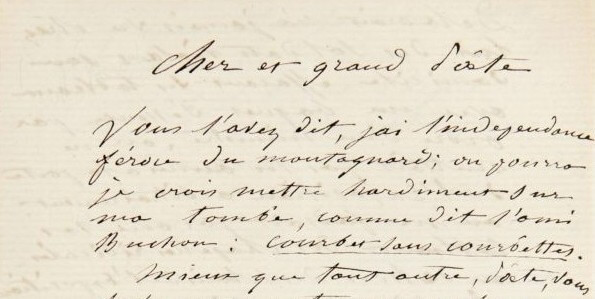 Cher et grand Poëte
Vous l'avez dit, j'ai l'indépendance
féroce du montagnard; on pourra
je crois mettre hardiment sur
ma tombe, comme dit l'ami
Buchon: Courbet sans courbettes.
Mieux que tout autre, Poëte, vous